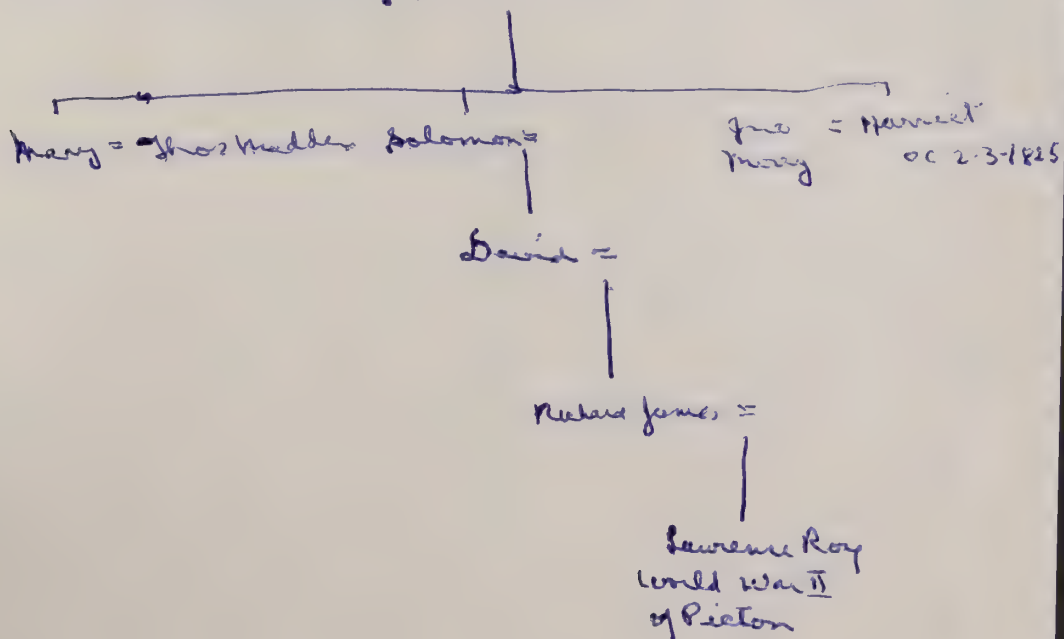 Mary = Thos Madden Solomon =
Jno = Harriet
OC 2-3-1825
David =
Richard James =
Lawrence Roy
World War II
of Picton